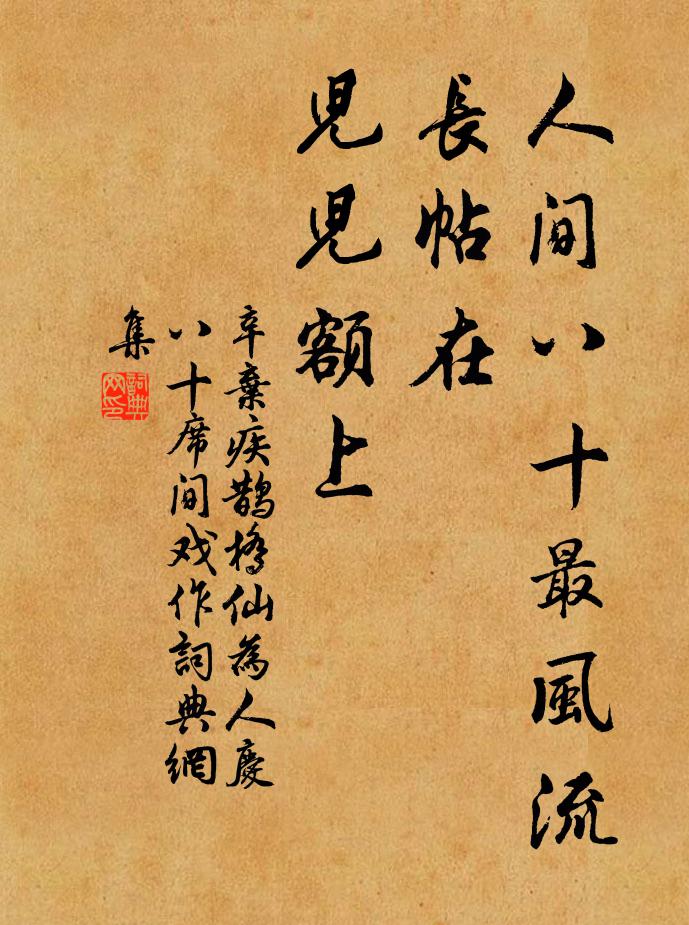 人间八十最風流
長帖在
兒兒額上
辛棄疾鹊橋仙為人慶
八十席间戏作詞典網
集
詞典
网印